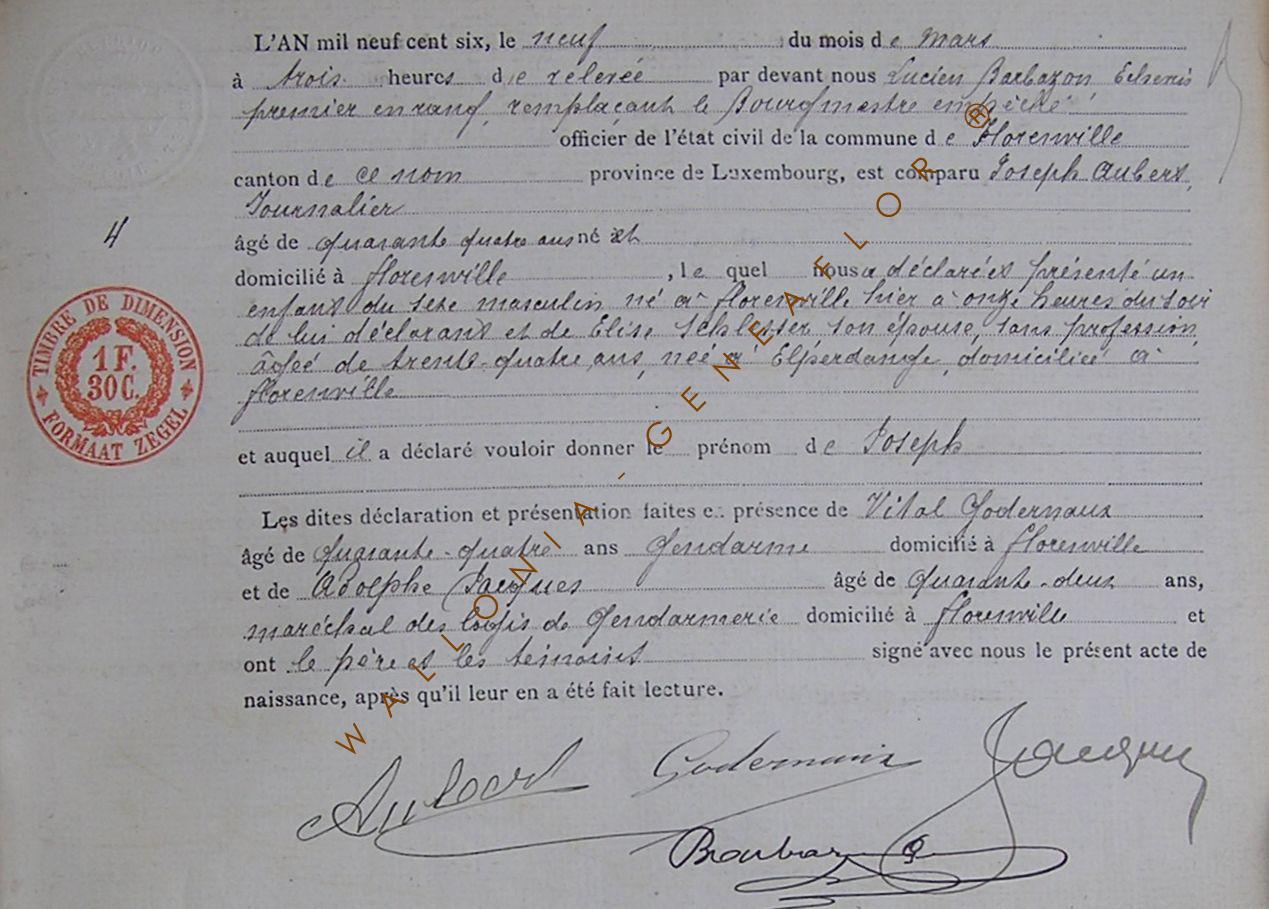 L'AN mil neuf cent six, le neuf du mois de Mars
à trois heures de relevée par devant nous Lucien Barbazon, Echevin
premier en rang, remplaçant le Bourgmestre empêché
officier de l'état civil de la commune de Florenville
canton de ce nom province de Luxembourg, est comparu Joseph Aubert,
Journalier
4
âgé de quarante quatre ans né et
domicilié à florenville, le quel nous a déclaré et présenté un
enfant du sexe masculin né à florenville hier à onze heures du soir
de lui déclarant et de Elise Schlesser son épouse, sans profession,
âgée de trente-quatre ans, née à Elperdange, domiciliée à
florenville
TIMBRE DE DIMENSION
1 F.
30 C.
FORMAAT ZEGEL
et auquel il a déclaré vouloir donner le prénom de Joseph
Les dites déclaration et présentation faites en présence de Vital Godernaux
âgé de quarante-quatre ans Gendarme domicilié à florenville
et de Adolphe Jacques âgé de quarante-deux ans,
maréchal des logis de Gendarmerie domicilié à florenville et
ont le père et les témoins signé avec nous le présent acte de
naissance, après qu'il leur en a été fait lecture.
Aubert Godernaux Jacques
Barbazon
WALLONIA-GENEAFLOR ®